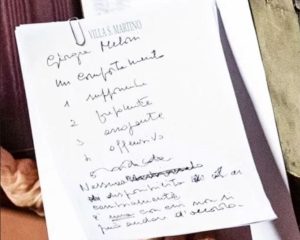 VILLA S. MARTINO
Giorgia Meloni
un comportamento
1 supponente
2 prepotente
3 arrogante
4 offensivo
Nessuna disponibilità ai
cambiamenti
è una con cui non si
può andar d'accordo.